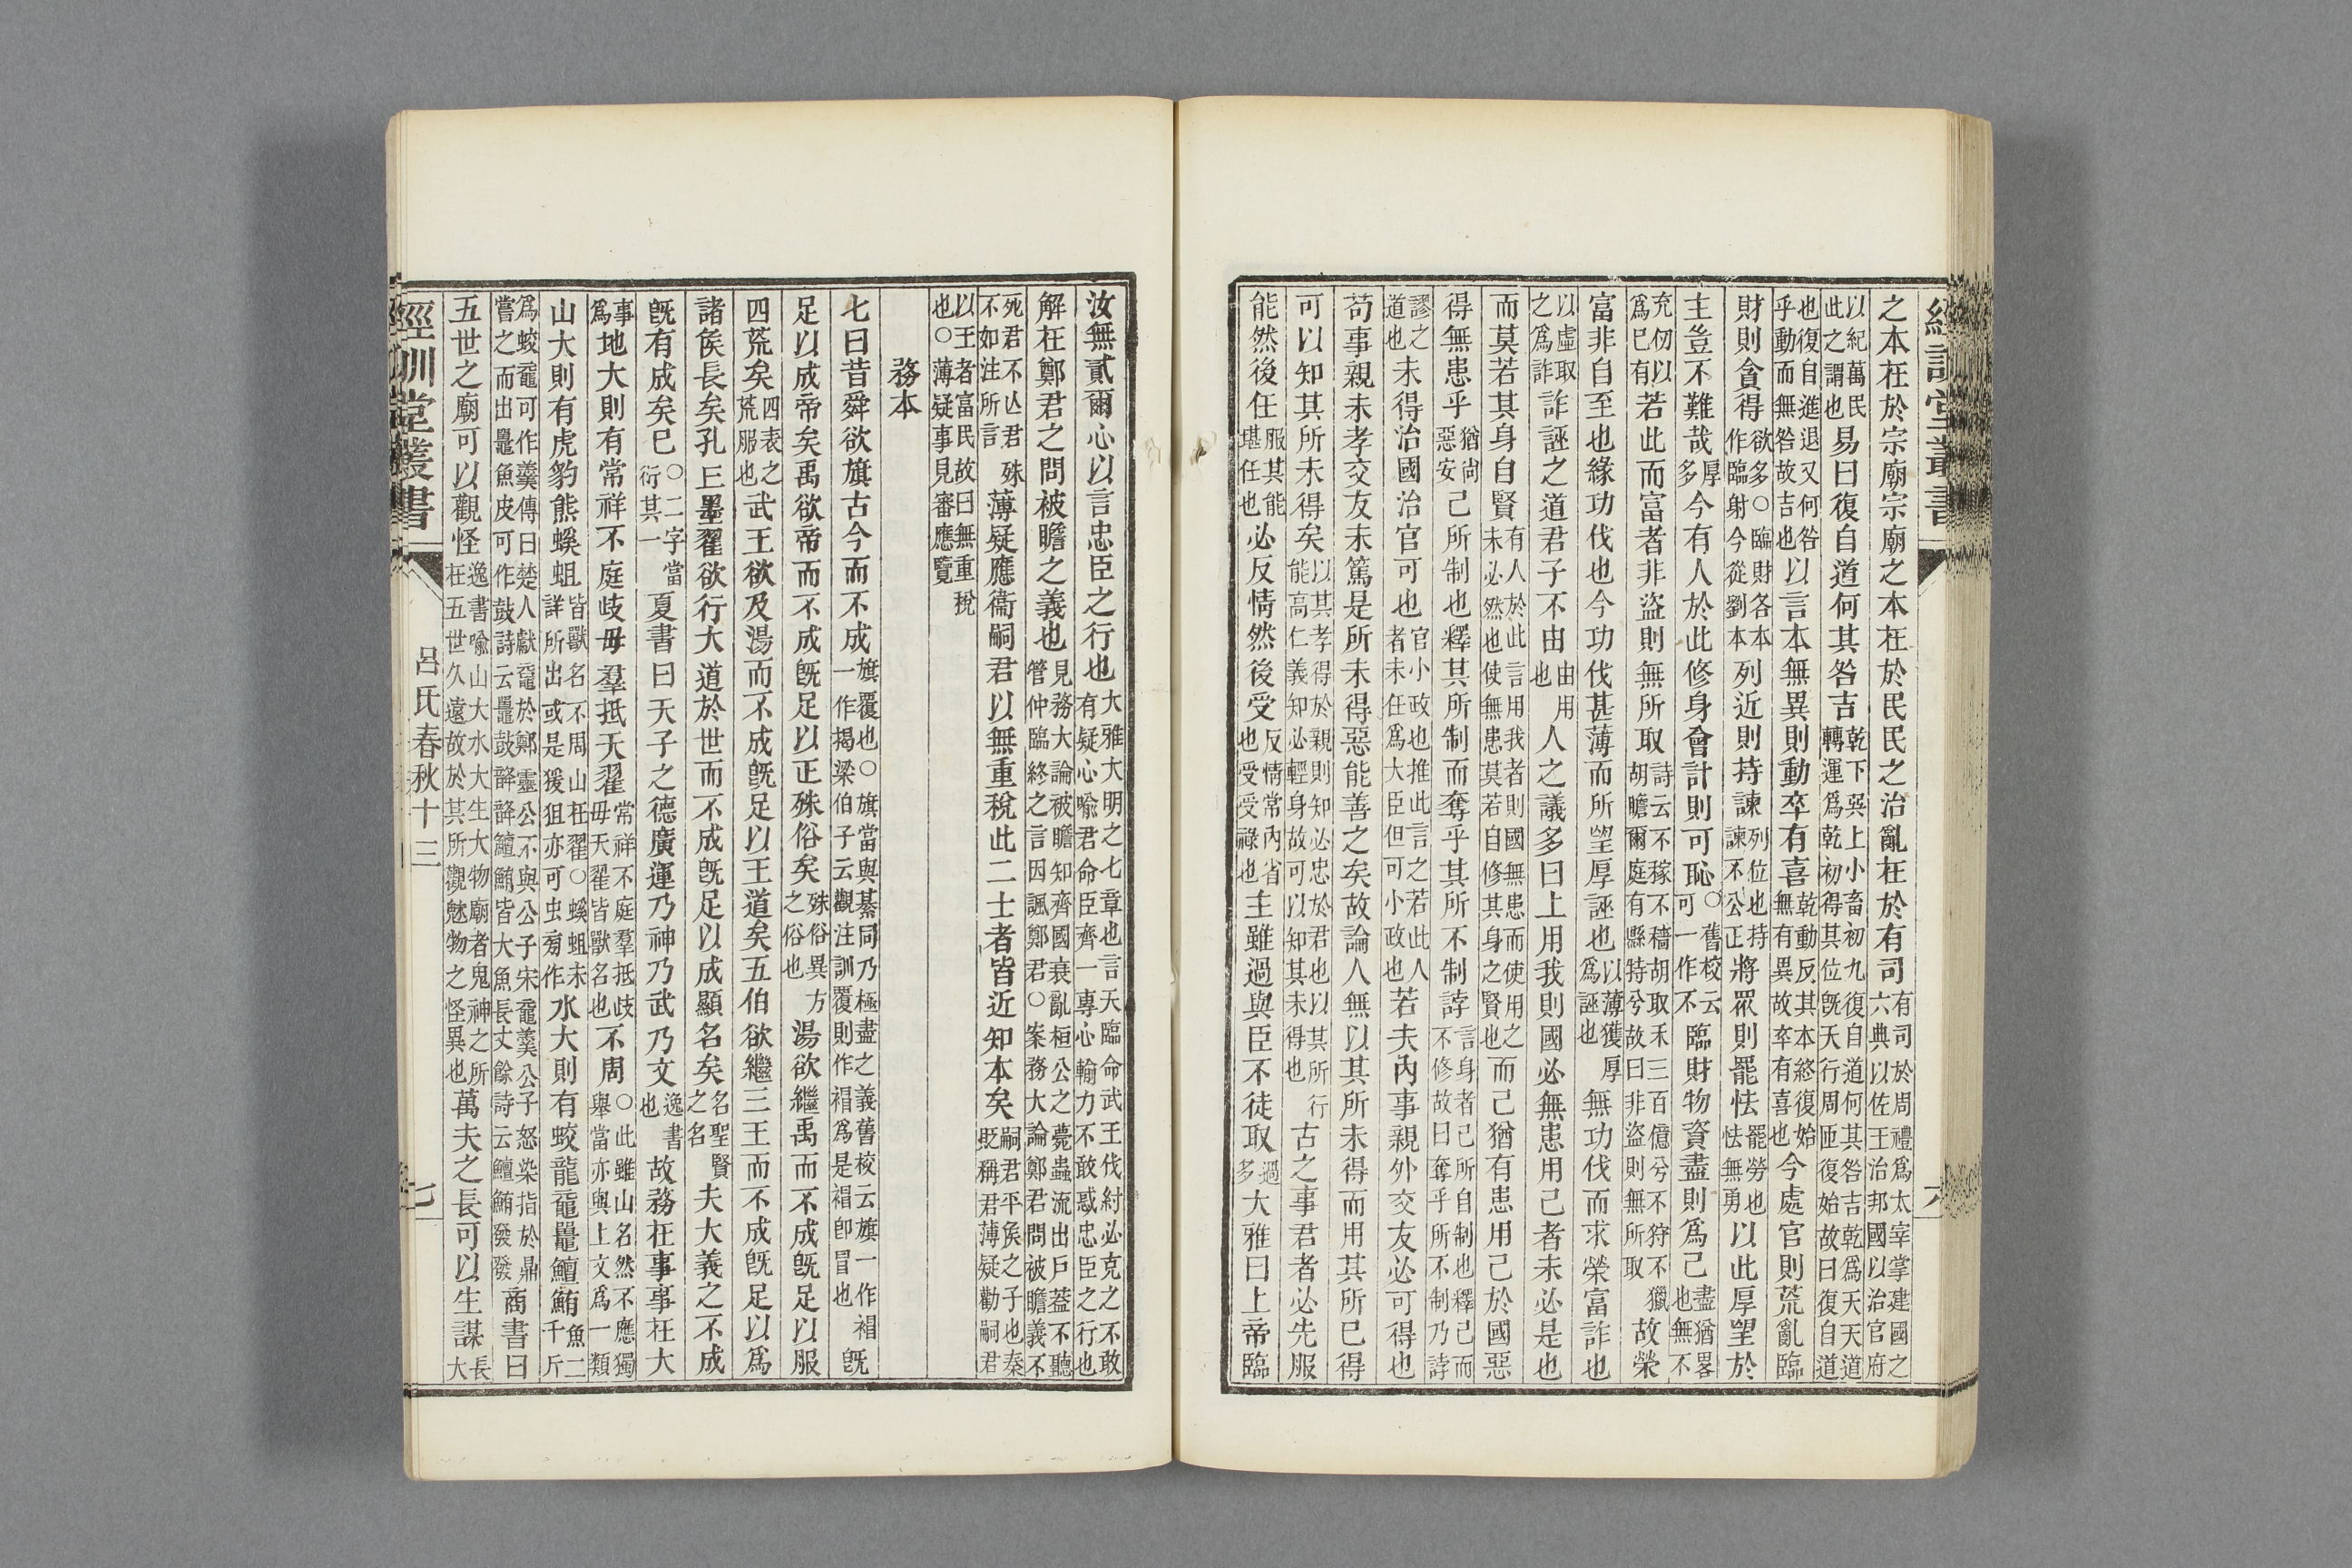 六
之本在於宗廟宗廟之本在於民民之治亂在於有司有司於周禮爲太宰掌建國之六典以佐王治邦國以治官府
以紀萬民此之謂也易曰復自道何其咎吉乾下巽上小畜初九復自道何其咎吉乾爲天天道轉運爲乾初得其位旣天行周匝復始故曰復自道
也復自進退又何咎乎動而無咎故吉也以言本無異則動卒有喜乾動反其本終復始無有異故卒有喜也今處官則荒亂臨
財則貪得欲多○臨財各本作臨射今從劉本列近則持諫列位也持諫不公正將眾則罷怯罷勞也怯無勇以此厚望於
主豈不難哉厚多今有人於此修身會計則可恥○舊校云可一作不臨財物資盡則爲己盡猶畧也無不
充仞以爲已有若此而富者非盜則無所取詩云不稼不穡胡取禾三百億兮不狩不獵胡瞻爾庭有縣特兮故曰非盜則無所取故榮
富非自至也緣功伐也今功伐甚薄而所望厚誣也以薄獲厚爲誣也無功伐而求榮富詐也
以虛取之爲詐詐誣之道君子不由由用也人之議多曰上用我則國必無患用己者未必是也
而莫若其身自賢有人於此言用我者則國無患而使用之未必然也使無患莫若自修其身之賢也而己猶有患用己於國惡
得無患乎猶尙惡安己所制也釋其所制而奪乎其所不制誖言身者己所自制也釋己而不修故曰奪乎所不制乃誖
謬之道也未得治國治官可也官小政也推此言之若此人者未任爲大臣但可小政也若夫內事親外交友必可得也
苟事親未孝交友未篤是所未得惡能善之矣故論人無以其所未得而用其所已得
可以知其所未得矣以其孝得於親則知必忠於君也以其所行能高仁義知必輕身故可以知其未得也古之事君者必先服
能然後任服其能堪任也必反情然後受反情常內省也受受祿也主雖過與臣不徒取過多大雅曰上帝臨
汝無貳爾心以言忠臣之行也大雅大明之七章也言天臨命武王伐紂必克之不敢有疑心喻君命臣齊一專心輸力不敢惑忠臣之行也
解在鄭君之問被瞻之義也見務大論被瞻知齊國衰亂桓公之薨蟲流出戶葢不聽管仲臨終之言因諷鄭君○案務大論鄭君問被瞻義不
死君不亾君殊不如注所言薄疑應衞嗣君以無重稅此二士者皆近知本矣嗣君平侯之子也秦貶稱君薄疑勸嗣君
以王者富民故曰無重稅也○薄疑事見審應覽
務本
七曰昔舜欲旗古今而不成旗覆也○旗當與綦同乃極盡之義舊校云旗一作裮一作揭梁伯子云觀注訓覆則作裮爲是裮卽冒也旣
足以成帝矣禹欲帝而不成旣足以正殊俗矣殊俗異方之俗也湯欲繼禹而不成旣足以服
四荒矣四表之荒服也武王欲及湯而不成旣足以王道矣五伯欲繼三王而不成旣足以爲
諸侯長矣孔丘墨翟欲行大道於世而不成旣足以成顯名矣名聖賢之名夫大義之不成
旣有成矣已○二字當衍其一夏書曰天子之德廣運乃神乃武乃文逸書也故務在事事在大
事爲地大則有常祥不庭歧毋羣抵天翟常祥不庭羣抵歧毋天翟皆獸名也不周○此雖山名然不應獨舉當亦與上文爲一類
山大則有虎豹熊螇蛆皆獸名不周山在翟○螇蛆未詳所出或是猨狙亦可虫旁作水大則有蛟龍黿鼉鱣鮪魚二千斤
爲蛟黿可作羹傳曰楚人獻黿於鄭靈公不與公子宋黿羹公子怒染指於鼎嘗之而出鼉魚皮可作鼓詩云鼉鼓辥辥鱣鮪皆大魚長丈餘詩云鱣鮪發發商書曰
五世之廟可以觀怪逸書喻山大水大生大物廟者鬼神之所在五世久遠故於其所觀魅物之怪異也萬夫之長可以生謀長大
經訓堂叢書 呂氏春秋十三 七